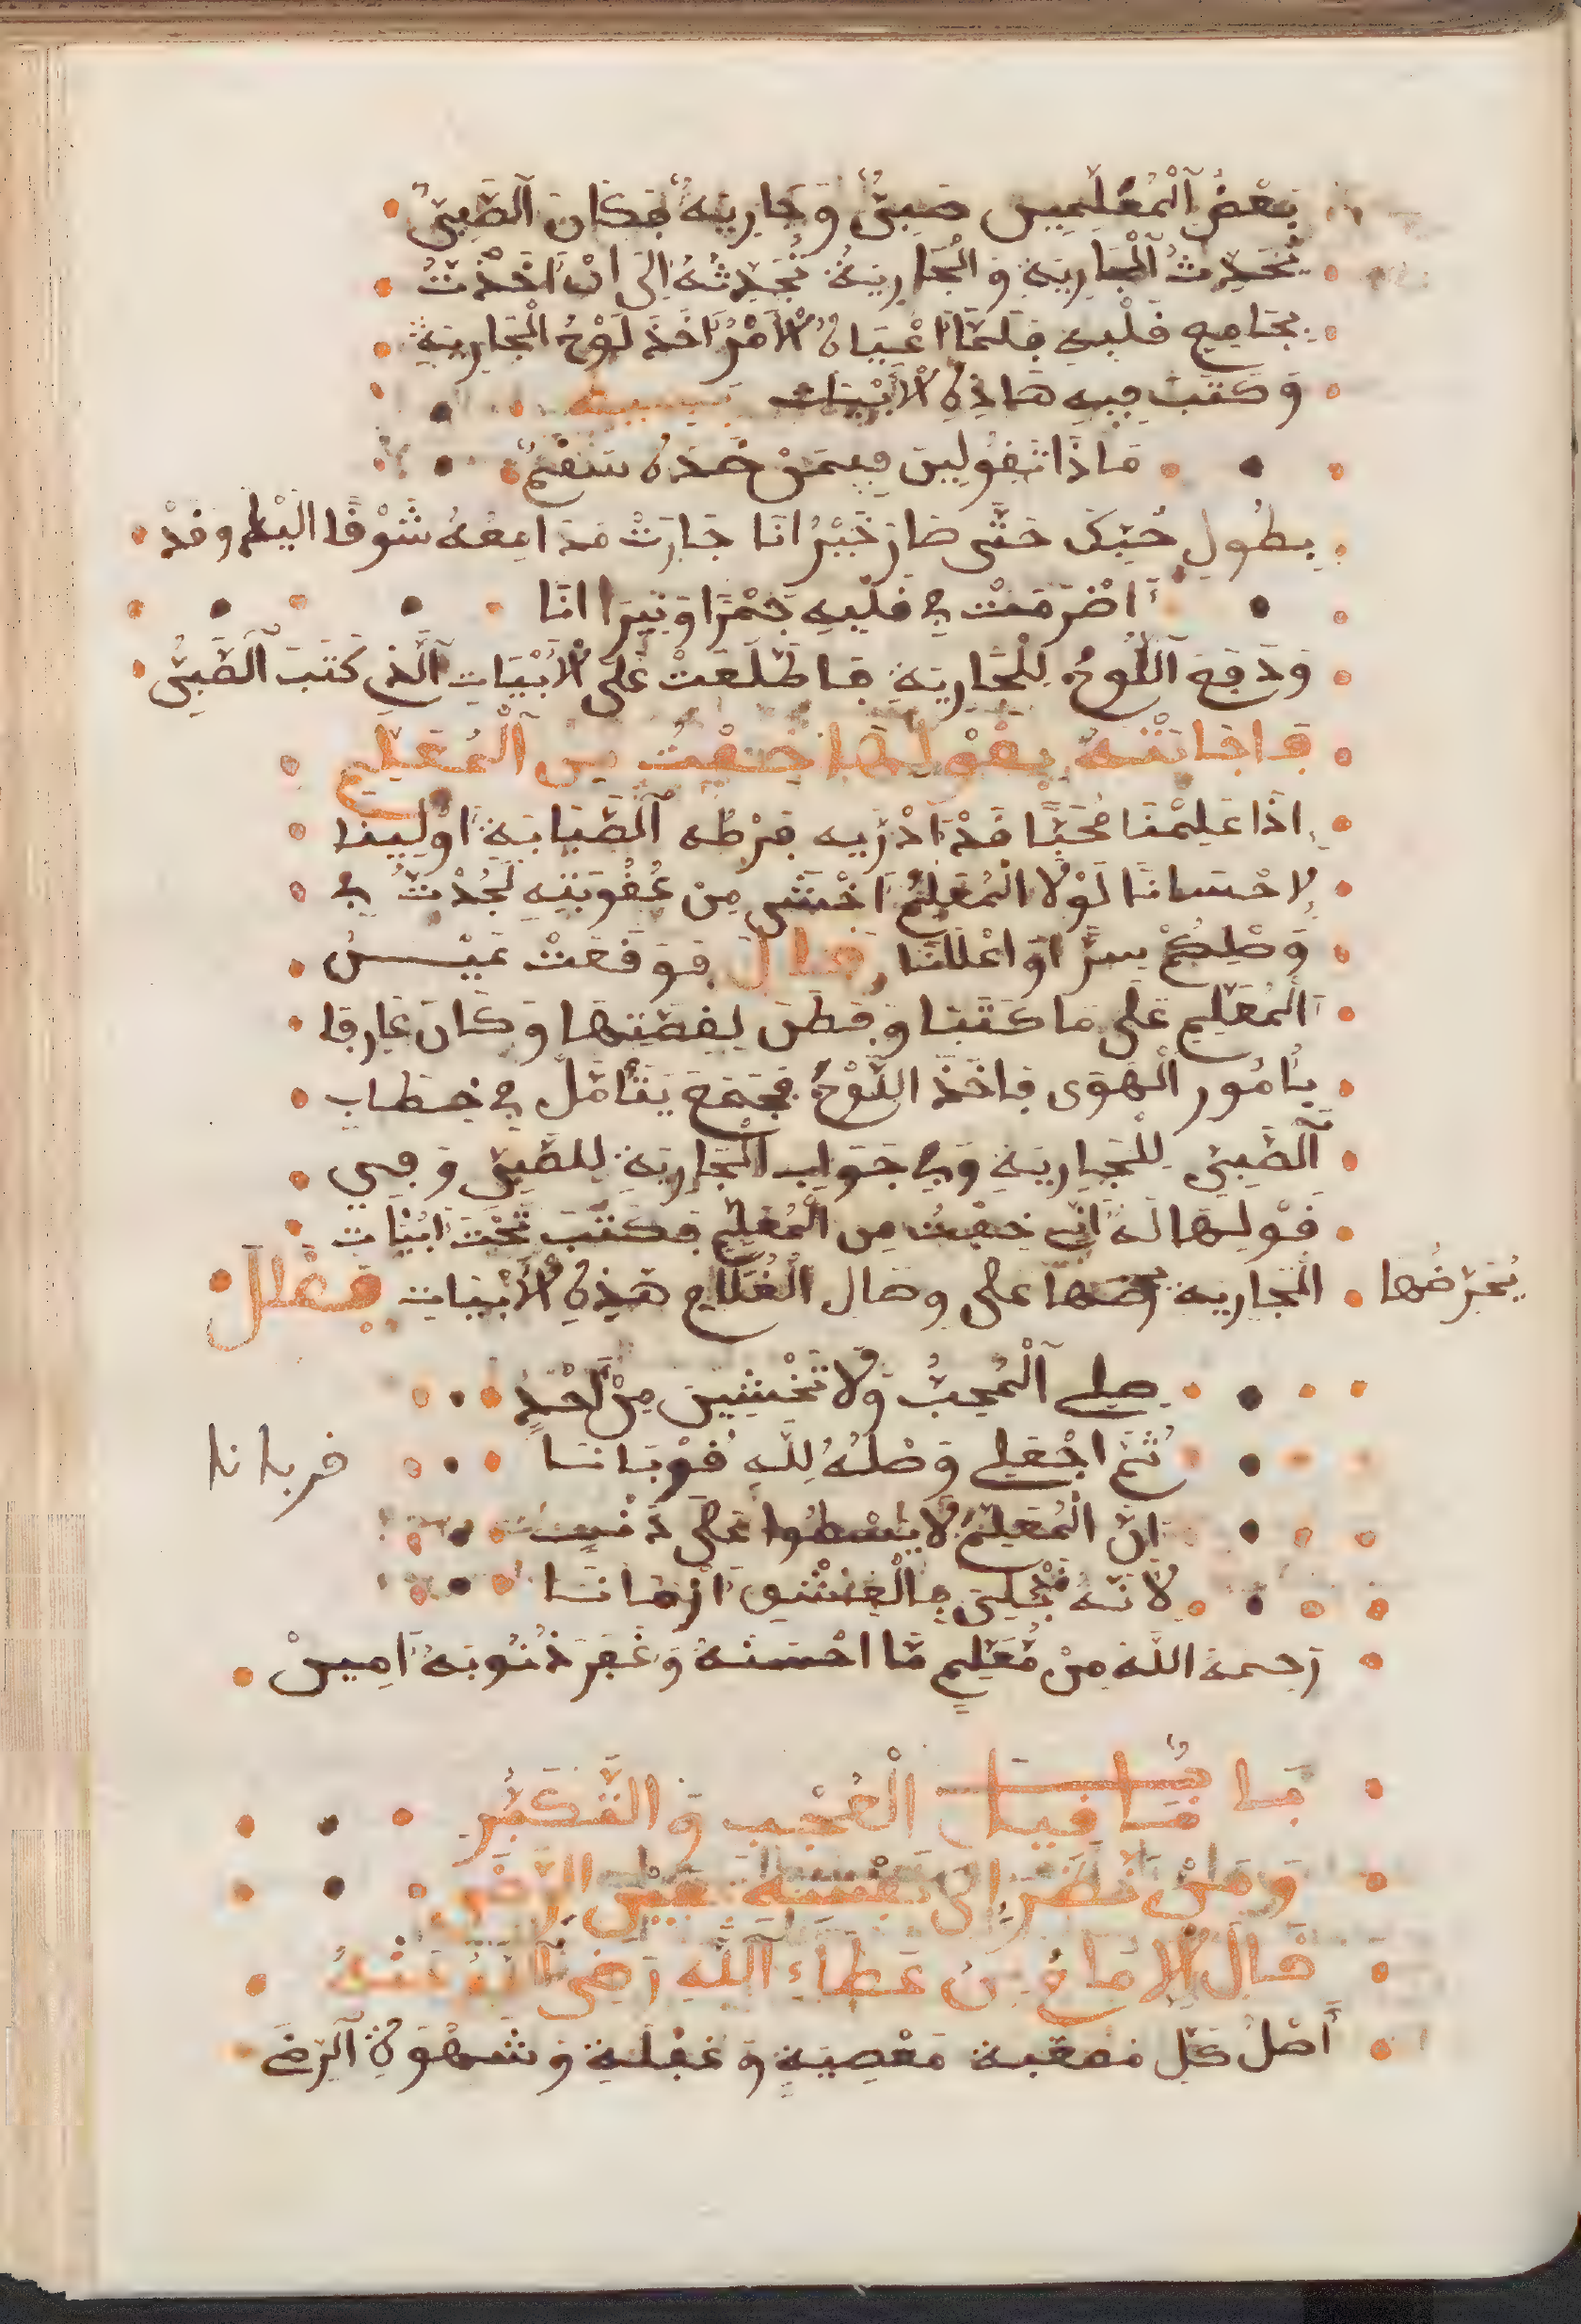 بَعْضُ ٱلْمُعَلِّمِينَ صَبِىٌّ وَجَارِيَةٌ فَكَانَ ٱلصَّبِىُّ
يُحَدِّثُ ٱلْجَارِيَةِ وَالْجَارِيَةُ تُحَدِّثُهُ إِلَى اَنْ اَخَذَتْ
بِجَامِعِ قَلْبِهِ فَلَمَّا اَعْيَاهُ الْاَمْرُ اَخَذَ لَوْحُ الْجَارِيَةِ
وَكَتَبَ فِيهِ هَاذِهِ الْاَبْيَات
مَاذَا تَقُولِينَ فِيمَنْ خَدَّهُ سَقَمٌ
بِطُولِ حُبِّكَ حَتَّى صَارَ حَيْرَانَا جَارَتْ مَدَامِعُهُ شَوْقًا الَيْكِ وَقَدْ
اَضْرَمَتْ فِي قَلْبِهِ جَمْرًا وَنِيرَا انَا
وَدَفَعَ ٱللَّوْحُ لِلْجَارِيَةِ فَاطَّلَعَتْ عَلَى الْاَبْيَاتِ ٱلَّذِي كَتَبَ ٱلصَّبِىُّ
فَاجَابَتْهُ بِقَوْلِهَا خِفْتُ مِنَ ٱلْمُعَلِّمِ
اِذَا عَلِمْنَا مُحَبًّا قَدْ اَدْرَيه فَرْطُه ٱلصَّبَابَةِ اَوْلِينَا
لِاحْسَانًا لَوْلَا الْمُعَلِّمُ اَخْشَى مِنْ عُقُوبَتِهِ لَجُدْتُ فِي
وَصْلِكُمْ سِرًّا اوْ اعْلَانَا قَالَ فَوَقَعَتْ عَيْنُ
الْمُعَلِّمِ عَلَى مَا كَتَبَا وَفَطَنَ بِقِصَّتِهَا وَكَانَ عَارِفَا
بِأُمُورِ الْهَوَى فَاخَذَ اللَّوْحُ فَجَمَعَ يَتَأَمَّلُ فِي خِطَابِ
ٱلصَّبِىِّ لِلْجَارِيَةِ وَفِي جَوَابِ الْجَارِيَةِ لِلصَّبِىِّ وَفِي
قَوْلِهَا لَهُ اَنِّي خِفْتُ مِنَ الْمُعَلِّمِ فَكَتَبَ تَحْتَ اَبْيَاتِ
الْجَارِيَة يحرضها على وصال الْغُلَامِ هَذِهِ الْاَبْيَاتِ فَقَالَ
يُحَرِّضُهَا
صِلِي ٱلْمُحِبُّ وَلَا تَخْشِينَ مِنْ اَحَدٍ
ثُمَّ اجْعَلِي وَصْلُهُ لِلَّهِ قُوْبَانَا
قربانا
اِنَّ الْمُعَلِّمُ لَا يَسْطُوا عَلَى ذَنْبٍ
لَانَّهُ مُبْلَى بِالْعِشْقِ اَزْمَانَا
رَحِمَهُ اللَّهُ مِنْ مُعَلِّمٍ مَّا احْسَنَهُ وَغَفَرَ ذُنُوبَهُ اَمِينْ
بَابٌ مَا قِيلَ الْعُجْبِ وَالتَّكَبُّرِ
وَمَنْ نَظَرَ إِلَى نَفْسِهِ عَيْنَ الرِّضَى
قَالَ الْاِمَامُ بْنُ عَطَاءِ ٱللَّهِ رَضِيَ ٱللَّهُ عَنْهُ
أَصْلُ كُلِّ مَعْصِيَةٍ وَغَفْلَةٍ وَشَهْوَةٍ ٱلرِّضَى